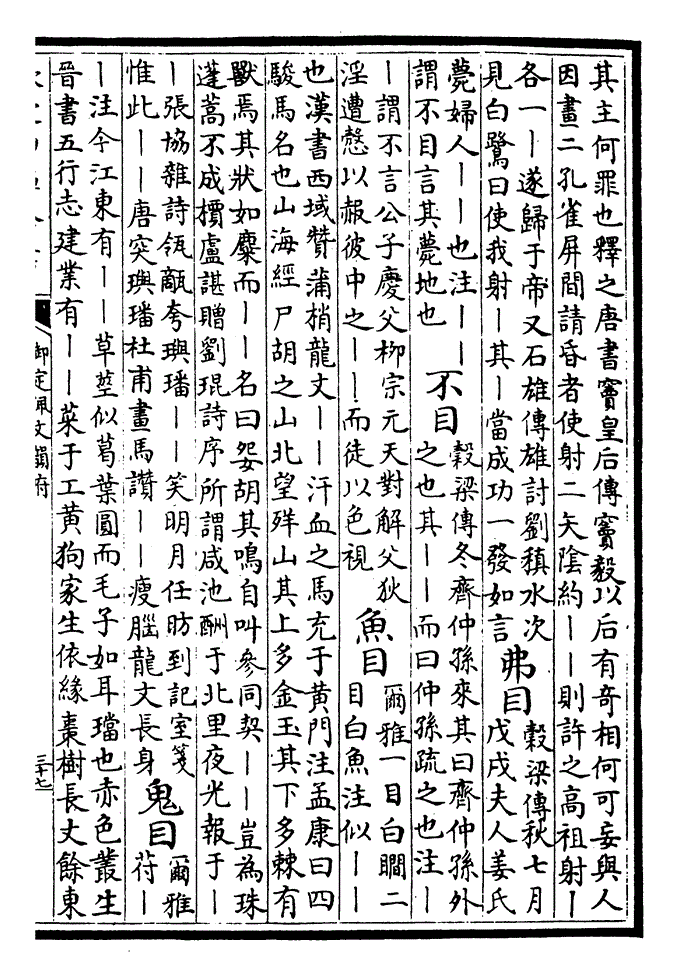 其主何罪也釋之唐書竇皇后傳竇毅以后有奇相何可妄與人
因畫二孔雀屏間請昏者使射二矢陰約丨丨則許之高祖射丨
各一丨遂歸于帝又石雄傳雄討劉稹水次
見白鷺曰使我射丨其丨當成功一發如言
弗目
穀梁傳秋七月
戊戌夫人姜氏
薨婦人丨丨也注丨丨
謂不目言其薨地也
不目
穀梁傳冬齊仲孫來其曰齊仲孫外
之也其丨丨而曰仲孫疏之也注丨
丨謂不言公子慶父柳宗元天對解父狄
淫遭愸以赧彼中之丨丨而徒以色視
魚目
爾雅一目白瞷二
目白魚注似丨丨
也漢書西域贊蒲梢龍文丨丨汗血之馬充于黃門注孟康曰四
駿馬名也山海經尸胡之山北望山其上多金玉其下多棘有
獸焉其狀如麋而丨丨名曰妴胡其鳴自叫參同契丨丨豈為珠
蓬蒿不成檟盧諶贈劉琨詩序所謂咸池酬于北里夜光報于丨
丨張協雜詩瓴甋夸璵璠丨丨笑明月任昉到記室箋
惟此丨丨唐突璵璠杜甫畫馬讚丨丨瘦腦龍文長身
鬼目
爾雅
苻丨
丨注今江東有丨丨草莖似葛葉圓而毛子如耳璫也赤色叢生
晉書五行志建業有丨丨菜于工黃狗家生依緣棗樹長丈餘東
御定佩文韻府
三十七